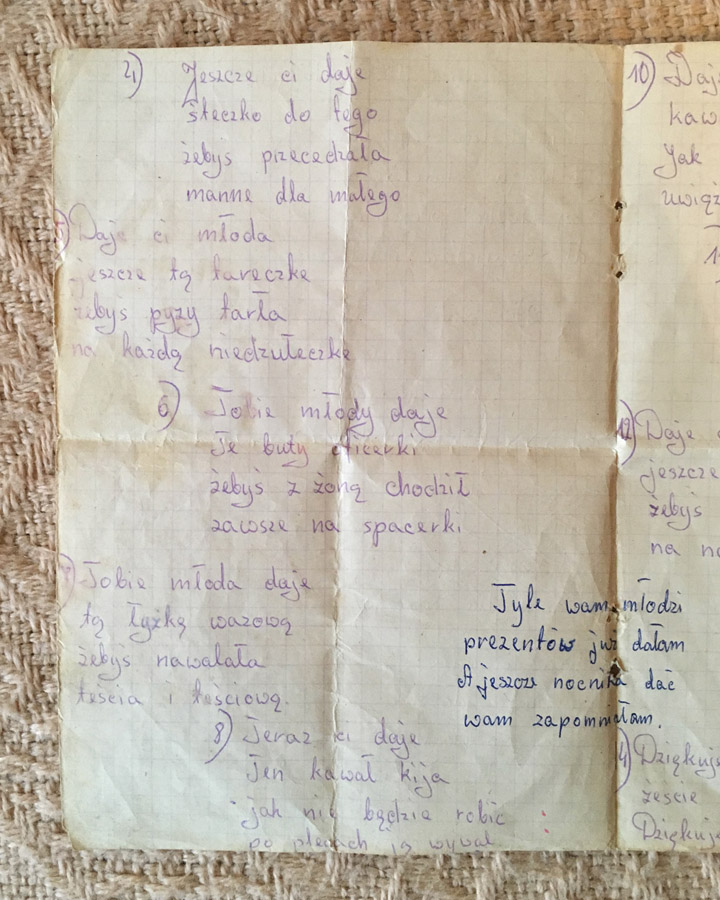 4) Jeszcze ci daje
steczko do tego
żebyś przecedzała
manne dla małego
5) Daje ci młoda
jeszcze tą tareczkę
żebyś pyzy tarła
na każdą niedzułeczkę
6) Tobie młody daje
Te buty oficerki
żebyś z żoną chodził
zawsze na spacerki
7) Tobie młoda daje
tą łyżką wazową
żebyś nawalała
teścia i teściową.
8) Teraz ci daje
Ten kawał kija
jak nie będzie robić
po plecach ją wywał
Tyle wam młodzi
prezentów już dałam
A jeszcze nocnika dać
wam zapomniałam.
10) Daj
kaw
Jak
uwiąz
12) Daje
jeszcze
żebyś
na
Dziękuj
żeście
Dziękuj